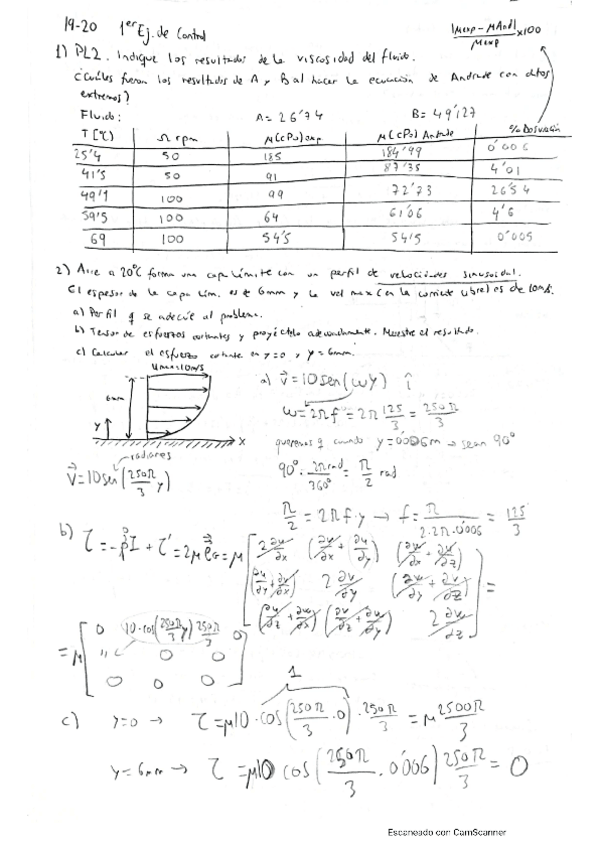 19-20 1er Ej. de Control
|μexp - μAnd| / μexp x100
1) PL2. Indique los resultados de la viscosidad del fluido.
¿Cuáles fueron los resultados de A y B al hacer la ecuación de Andrade con datos
extremos?
Fluido: A = 26'74 B = 49'127
T [ºC] Ω rpm μ(cPo) exp μ(cPo) Andrade % Desviación
25'4 50 185 184'99 0'006
41'5 50 91 87'35 4'01
49'1 100 99 72'73 26'54
59'5 100 64 61'06 4'6
69 100 54'5 54'5 0'005
2) Aire a 20ºC forma una capa límite con un perfil de velocidades sinusoidal.
El espesor de la capa lím. es de 6mm y la vel max (en la corriente libre) es de 10m/s.
a) Perfil q se adecúe al problema.
b) Tensor de esfuerzos cortantes y proyéctelo adecuadamente. Muestre el resultado.
c) Calcular el esfuerzo cortante en y=0 y y=6mm.
Umax=10m/s
6mm
y
x
a) v⃗ = 10 sen(ωy) î
ω = 2πf = 2π 125/3 = 250π/3
queremos q cuando y=0'006m → sean 90º
90º · 2π rad/360º = π/2 rad
π/2 = 2πf·y → f = π/(2·2π·0'006) = 125/3
radianes
v⃗ = 10 sen(250π/3 y)
b) τ = -pI + τ' = 2μ e = μ [2 ∂u/∂x (∂v/∂x + ∂u/∂y) (∂w/∂x + ∂u/∂z)
(∂u/∂y + ∂v/∂x) 2 ∂v/∂y (∂w/∂y + ∂v/∂z)
(∂u/∂z + ∂w/∂x) (∂v/∂z + ∂w/∂y) 2 ∂w/∂z] =
= μ [0 10·cos(250π/3 y) 250π/3 0
" 0 0
0 0 0]
1
c) y=0 → τ = μ10·cos(250π/3 · 0) · 250π/3 = μ 2500π/3
y=6mm → τ = μ10 cos(250π/3 · 0'006) 250π/3 = 0
Escaneado con CamScanner